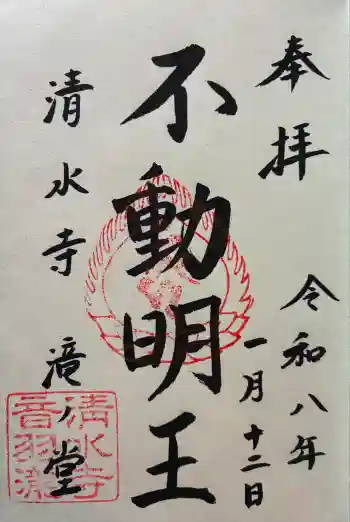 奉拝
令和八年
一月十二日
不動明王
清水寺 滝ノ堂
清水寺
音羽瀧